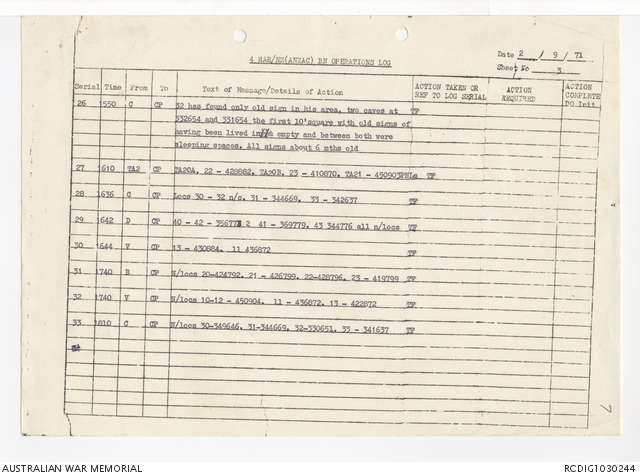 4 RAR/NZ(ANZAC) BN OPERATIONS LOG
Date 2 / 9 / 71
Sheet No 3
Serial Time From To Text of Message/Details of Action ACTION TAKEN OR REF TO LOG SERIAL ACTION REQUIRED ACTION COMPLETE DO Init
26 1550 C CP 32 has found only old sign in his area. two caves at TF
332654 and 331654 the first 10'square with old signs of
having been lived in empty and between both were
sleeping spaces. All signs about 6 mths old
27 1610 TA2 CP TA20A, 22 - 428882, TA20B, 23 - 410870, TA21 - 450903 TF
28 1636 C CP Locs 30 - 32 n/c. 31 - 344669, 33 - 342637 TF
29 1642 D CP 40 - 42 - 356772 41 - 369779, 43 344776 all n/locs TF
30 1644 V CP 13 - 430884, 11 436872 TF
31 1740 B CP N/locs 20-424792, 21 - 426799, 22-428796, 23 - 419799 TF
32 1740 V CP N/locs 10-12 - 450904, 11 - 436872, 13 - 422872 TF
33 1810 C CP N/locs 30-349646, 31-344669, 32-330651, 33 - 341637 TF
7
AUSTRALIAN WAR MEMORIAL RCDIG1030244